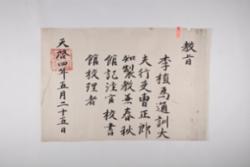 教旨
李植爲通訓大
夫行吏曹正郎
知製教兼春秋
館記注官校書
館校理者
天啓四年五月二十五日